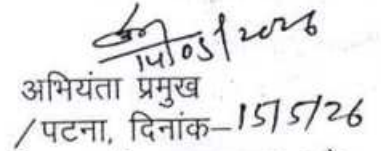 14/05/2026
अभियंता प्रमुख
/पटना, दिनांक–15/5/26